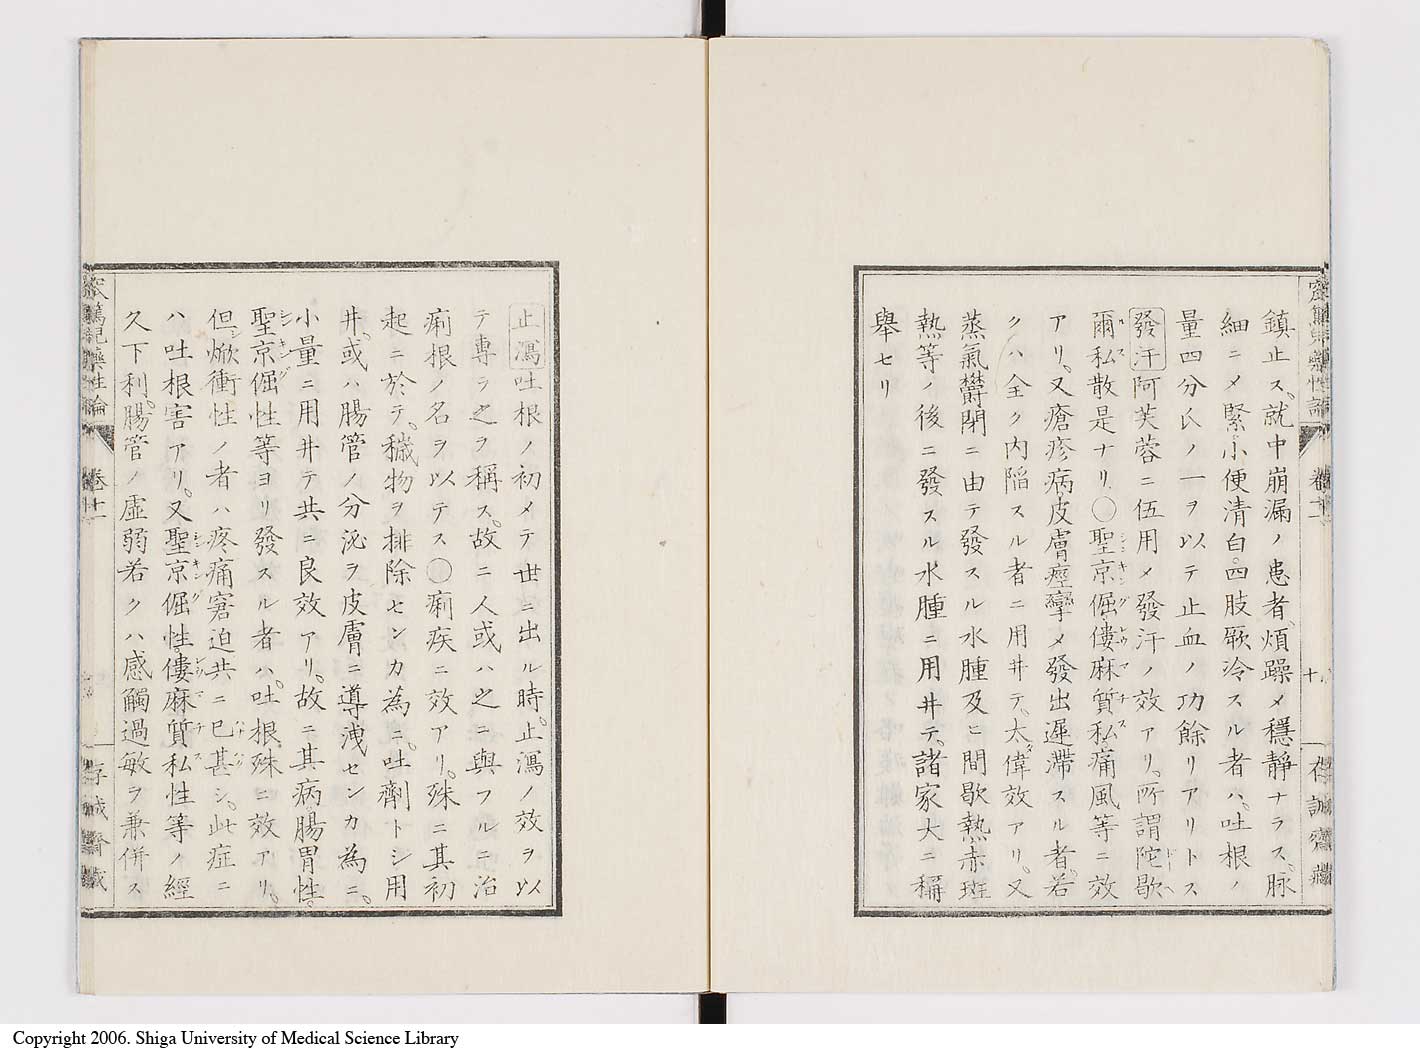 鎮止ス、就中崩漏ノ患者、煩躁メ穩靜ナラス、脉
細ニメ緊、小便清白、四肢厥冷スル者ハ、吐根ノ
量四分氏ノ一ヲ以テ止血ノ功餘リアリトス
發汗 阿芙蓉ニ伍用メ發汗ノ效アリ、所謂陀歇
爾私散是ナリ、〇聖京倔僂麻質私痛風等ニ效
アリ、又瘡疹病皮膚痙攣メ發出遲滯スル者、若
クハ全ク内陷スル者ニ用井テ、太偉效アリ、又
蒸氣欝閉ニ由テ發スル水腫及ヒ間歇熱赤斑
熱等ノ後ニ發スル水腫ニ用井テ、諸家大ニ稱
舉セリ
卷十二
十
存誠齋藏
止瀉 吐根ノ初メテ世ニ出ル時、止瀉ノ效ヲ以
テ專ラ之ヲ稱ス、故ニ人或ハ之ニ與フルニ治
痢根ノ名ヲ以テス〇痢疾ニ效アリ、殊ニ其初
起ニ於テ、穢物ヲ排除センカ為ニ、吐劑トシ用
井、或ハ腸管ノ分泌ヲ皮膚ニ導洩センカ為ニ、
小量ニ用井テ共ニ良效アリ、故ニ其病腸胃性、
聖京倔性等ヨリ發スル者ハ、吐根殊ニ效アリ、
但シ焮衝性ノ者ハ疼痛窘迫共ニ已甚シ、此症ニ
ハ吐根害アリ、又聖京倔性、僂麻質私性等ノ經
久下利、腸管ノ虛弱若クハ感觸過敏ヲ兼併ス
藥性論
卷十二
存誠齋藏
Copyright 2006. Shiga University of Medical Science Library